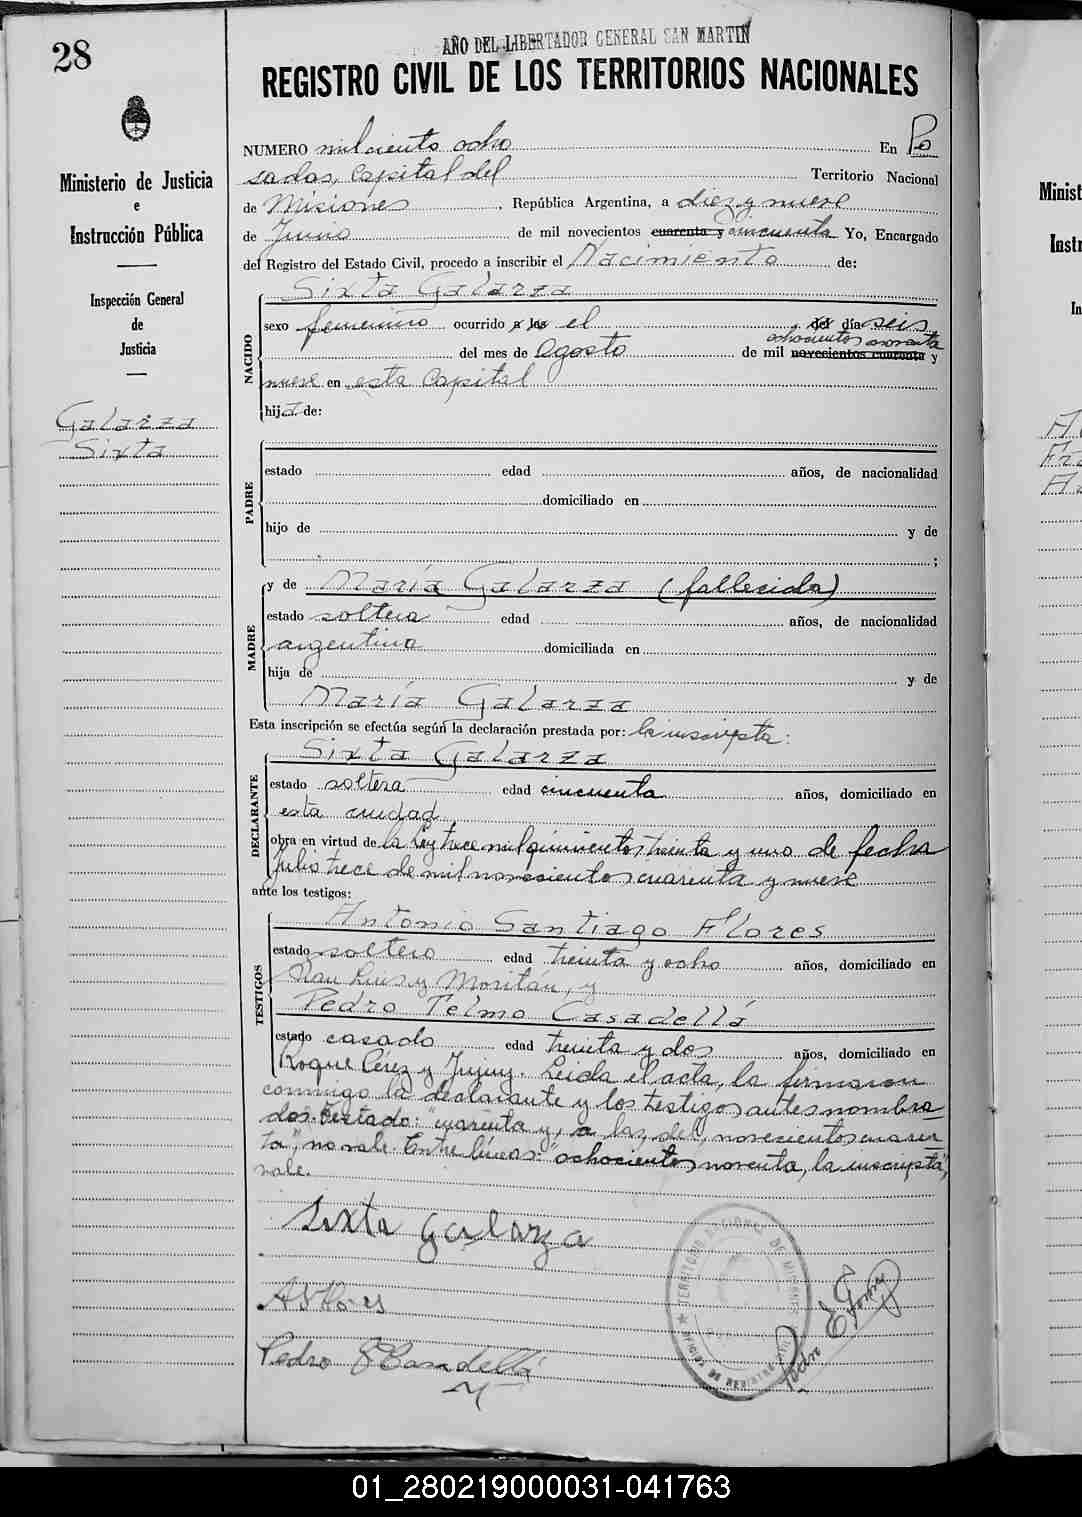 28
AÑO DEL LIBERTADOR GENERAL SAN MARTIN
REGISTRO CIVIL DE LOS TERRITORIOS NACIONALES
Ministerio de Justicia
e
Instrucción Pública
Inspección General
de
Justicia
Galarza
Sixta
NUMERO mil ciento ocho En Po
sadas, Capital del Territorio Nacional
de Misiones, República Argentina, a diez y nueve
de Junio de mil novecientos cuarenta y cincuenta Yo, Encargado
del Registro del Estado Civil, procedo a inscribir el Nacimiento de:
NACIDO
Sixta Galarza
sexo femenino ocurrido a las el del día seis
ochocientos noventa
del mes de agosto de mil novecientos cuarenta y
nueve en esta Capital
hija de:
PADRE
estado edad años, de nacionalidad
domiciliado en
hijo de y de
;
MADRE
y de María Galarza (fallecida)
estado soltera edad años, de nacionalidad
argentina domiciliada en
hija de y de
María Galarza
Esta inscripción se efectúa según la declaración prestada por: la inscripta:
DECLARANTE
Sixta Galarza
estado soltera edad cincuenta años, domiciliado en
esta ciudad
obra en virtud de la Ley trece mil quinientos treinta y uno de fecha
Julio trece de mil novecientos cuarenta y nueve
ante los testigos:
TESTIGOS
Antonio Santiago Flores
estado soltero edad treinta y ocho años, domiciliado en
San Luis y Moritán, y
Pedro Telmo Casadellá
estado casado edad treinta y dos años, domiciliado en
Roque Pérez y Jujuy. Leida el acta, la firmaron
conmigo la declarante y los testigos antes nombra
dos. Testado: "cuarenta y, a las, del, novecientos cuaren
ta", no vale. Entre líneas: "ochocientos noventa, la inscripta",
vale.
Sixta galarza
ASFlores
Pedro T Casadellá
TERRITORIO NACIONAL DE MISIONES
OFICINA DE REGISTRO CIVIL
Minist
Instr
In
01_280219000031-041763